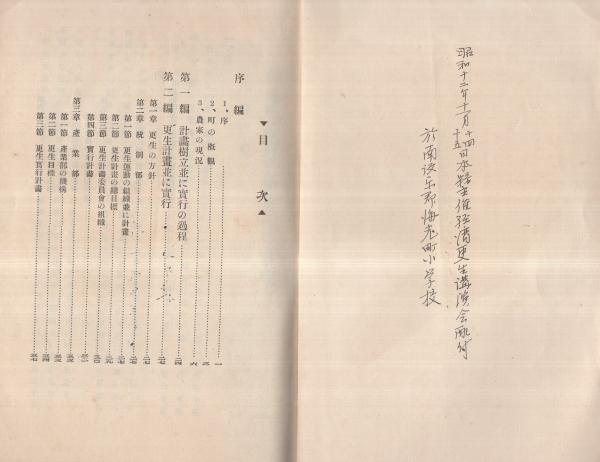 昭和十二年十一月十四日十五日本縣主催經濟更生講演会配付
於南設楽郡海老町小学校
▼目次▲
序編
1、序
2、町の概觀
3、農家の現況
第一編 計畫樹立並に實行の過程
第二編 更生計畫並に實行
第一章 更生の方針
第二章 統制部
第一節 更生運動の組織並に計畫
第二節 更生計畫の總目標
第三節 更生計畫委員會の組織
第四節 實行計畫
第三章 產業部
第一節 產業部の機構
第二節 更生目標
第三節 更生實行計畫